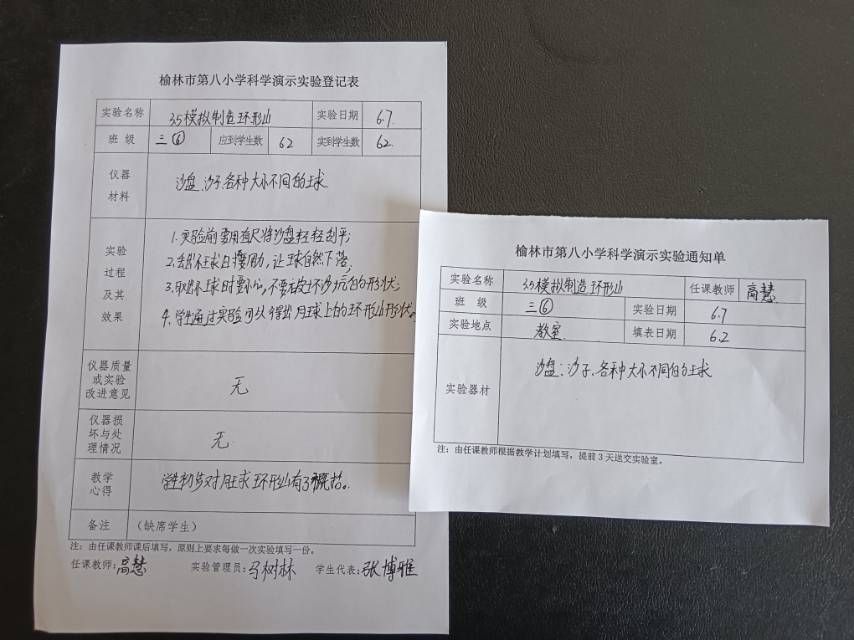 榆林市第八小学科学演示实验登记表
实验名称 35模拟制造环形山 实验日期 6.7.
班 级 三⑥ 应到学生数 62 实到学生数 62.
仪器材料 沙盘、沙子、各种大小不同的球
实验过程及其效果
1.实验前需用直尺将沙盘轻轻刮平;
2.球自然下落;
3.取球时要小心,不要破坏沙坑的形状;
4.学生通过实验可以得出月球上的环形山形状。
仪器质量或实验改进意见 无
仪器损坏与处理情况 无.
教学心得 学生初步对月球环形山有了概括。
备注 (缺席学生)
注:由任课教师课后填写,原则上要求每做一次实验填写一份。
任课教师:高慧 实验管理员:马树林 学生代表:张博雅
榆林市第八小学科学演示实验通知单
实验名称 35模拟制造环形山 任课教师 高慧
班 级 三⑥ 实验日期 6.7
实验地点 教室 填表日期 6.2
实验器材 沙盘、沙子、各种大小不同的球
注:由任课教师根据教学计划填写,提前3天送交实验室。